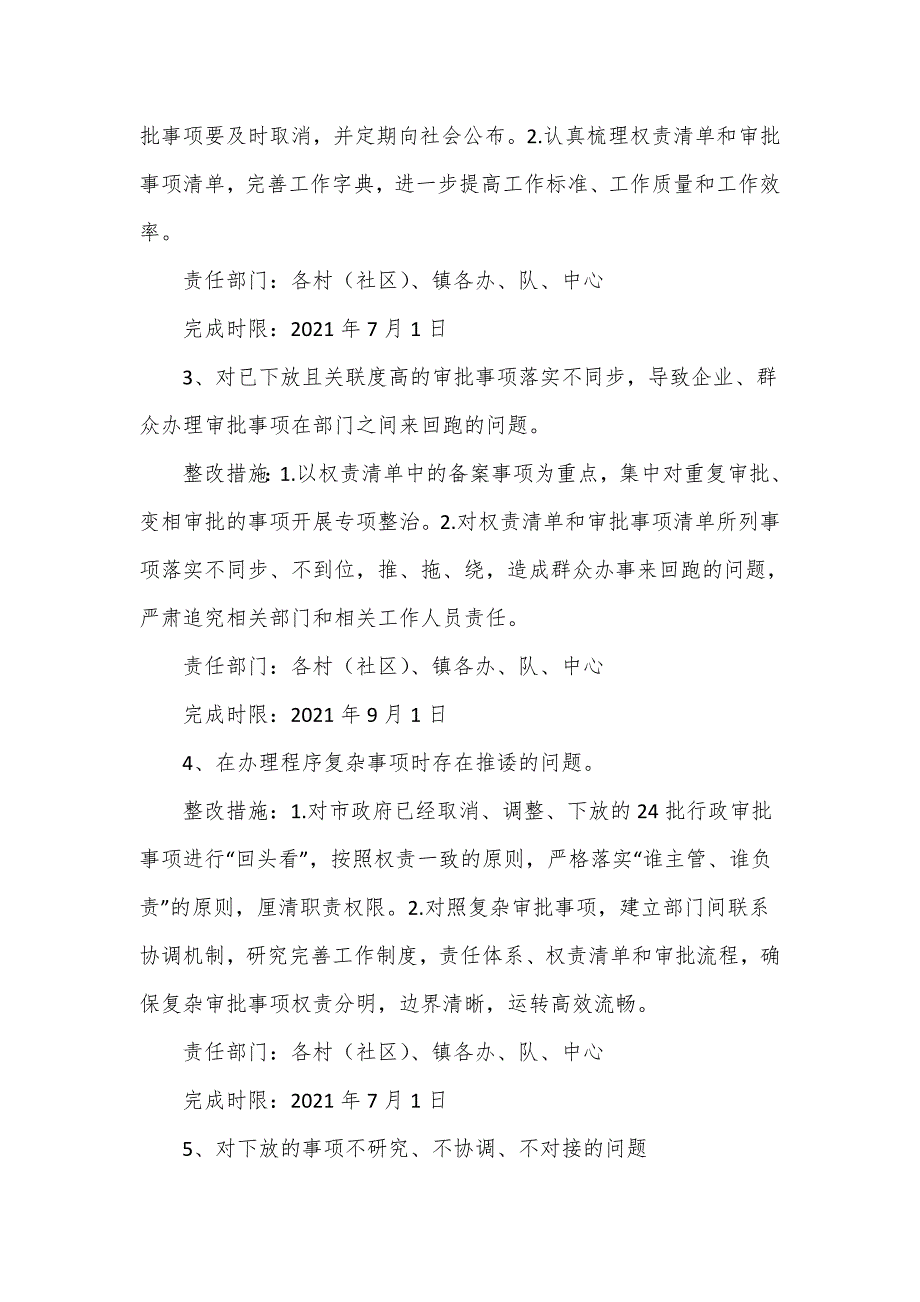 批事项要及时取消，并定期向社会公布。2.认真梳理权责清单和审批
事项清单，完善工作字典，进一步提高工作标准、工作质量和工作效
率。
责任部门：各村（社区）、镇各办、队、中心
完成时限：2021 年 7 月 1 日
3、对已下放且关联度高的审批事项落实不同步，导致企业、群
众办理审批事项在部门之间来回跑的问题。
整改措施：1.以权责清单中的备案事项为重点，集中对重复审批、
变相审批的事项开展专项整治。2.对权责清单和审批事项清单所列事
项落实不同步、不到位，推、拖、绕，造成群众办事来回跑的问题，
严肃追究相关部门和相关工作人员责任。
责任部门：各村（社区）、镇各办、队、中心
完成时限：2021 年 9 月 1 日
4、在办理程序复杂事项时存在推诿的问题。
整改措施：1.对市政府已经取消、调整、下放的 24 批行政审批
事项进行“回头看”，按照权责一致的原则，严格落实“谁主管、谁负
责”的原则，厘清职责权限。2.对照复杂审批事项，建立部门间联系
协调机制，研究完善工作制度，责任体系、权责清单和审批流程，确
保复杂审批事项权责分明，边界清晰，运转高效流畅。
责任部门：各村（社区）、镇各办、队、中心
完成时限：2021 年 7 月 1 日
5、对下放的事项不研究、不协调、不对接的问题